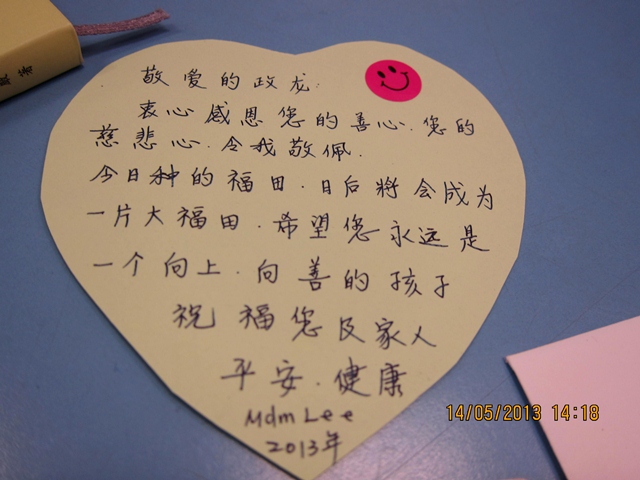 敬爱的政龙:
衷心感恩您的善心.您的
慈悲心.令我敬佩.
今日种的福田.日后将会成为
一片大福田.希望您永远是
一个向上.向善的孩子
祝福您及家人
平安.健康
Mdm Lee
2013年
14/05/2013 14:18